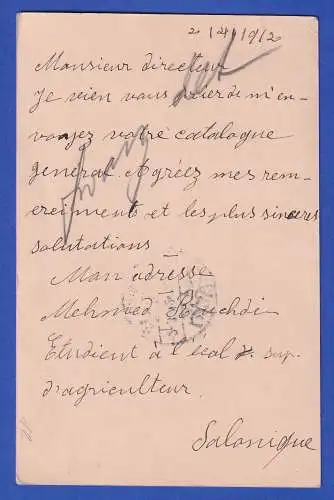 2/4/1912
Monsieur directeur
Je vien vous prier de m'en-
voyez votre catalogue
general. Agréez mes rem-
erciments et les plus sincères
salutations
Mon adresse
Mehmed Rouchdi
Etudient à l'ecol sup.
d'agriculteur.
Salonique